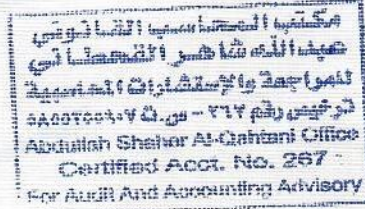 مكتب المحاسب القانوني
عبدالله شاهر القحطاني
للمراجعة والإستشارات الحسبية
ترخيص رقم ٢٦٧ - س.ت
Abdullah Shaher Al-Qahtani Office
Certified Acct. No. 267
For Audit And Accounting Advisory